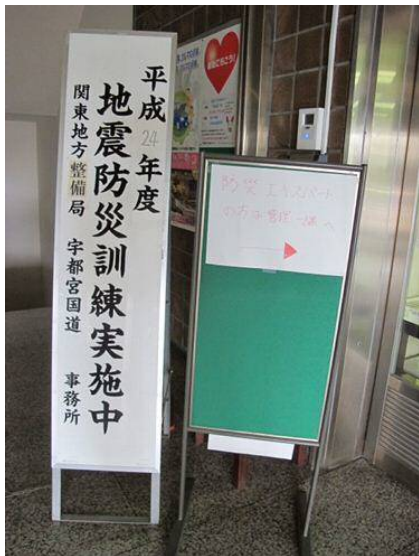 平成24年度
地震防災訓練実施中
関東地方整備局 宇都宮国道 事務所
防災エキスパート
の方は管理一課へ